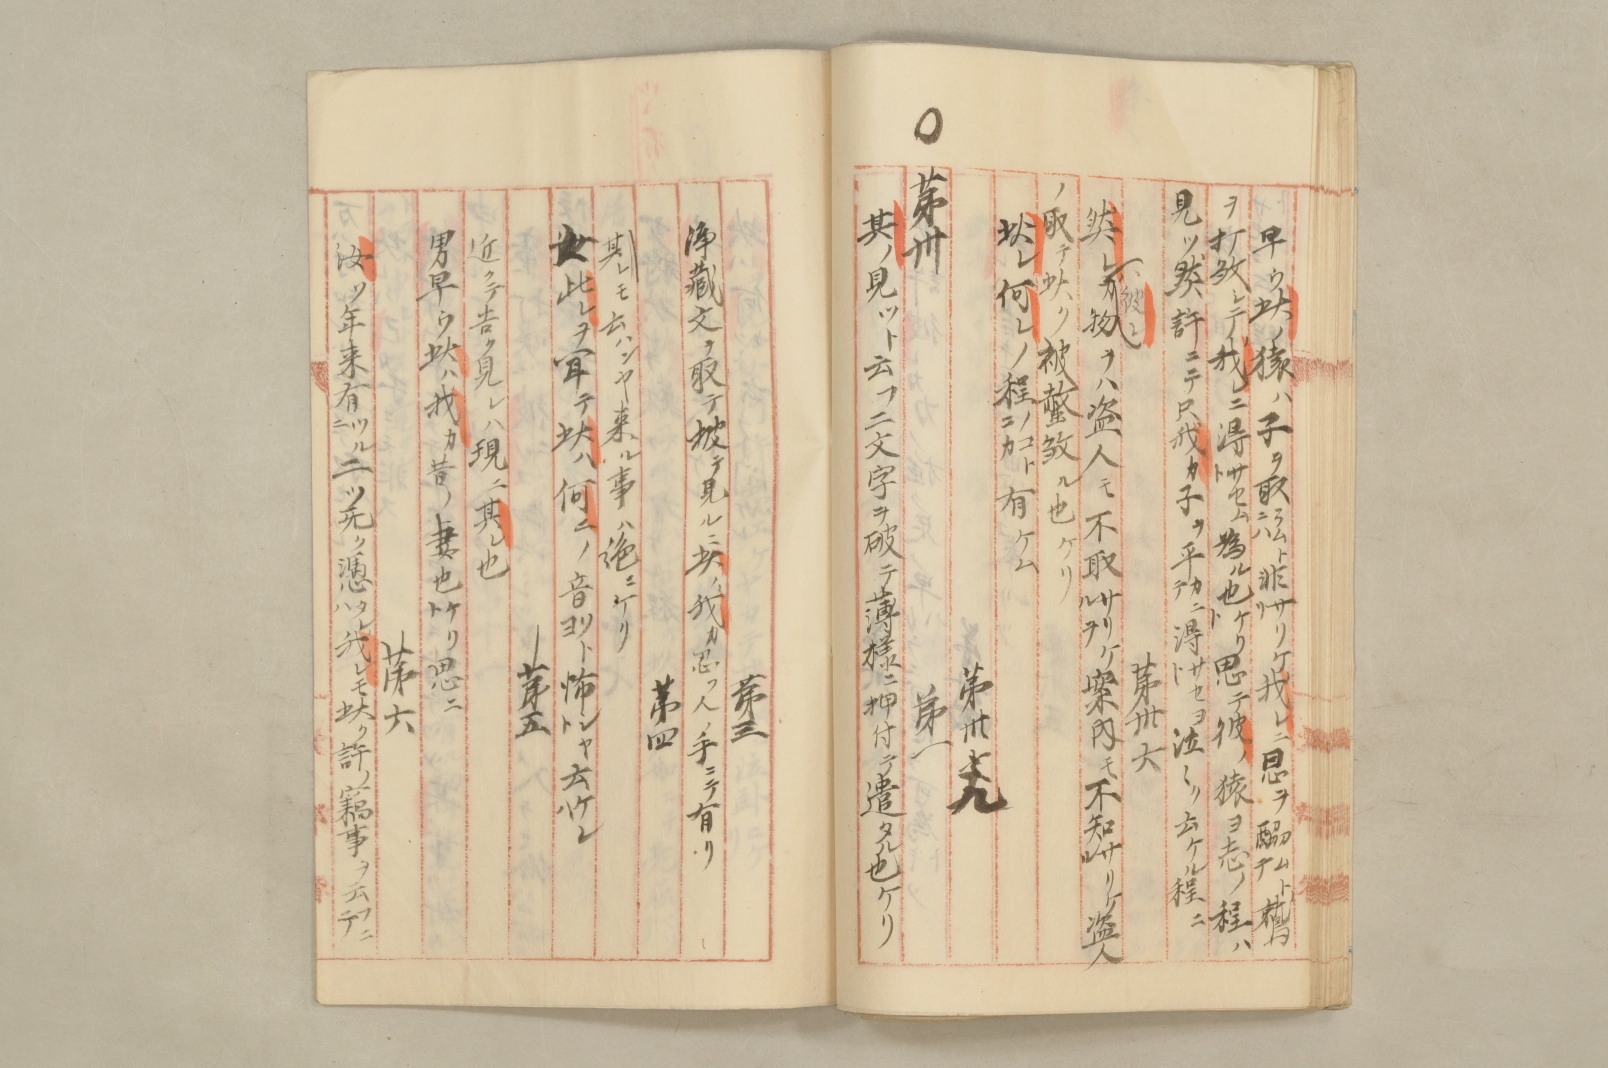 早ウ此ノ猿ハ子ヲ取ラムトニハ非サリケリ我レニ恩ヲ酬ムトテ鷲
ヲ打殺シテ我レニ得サセムト為ル也ケリト思テ彼ノ猿ヨ志ノ程ハ
見ツ然許ニテ只我カ子ヲ平カニテ得サセヨト泣々ク云ケル程ニ
第卅六
然レハ彼レカ物ヲハ盗人モ不取サリケルヲ案内モ不知サリケル盗人
ノ取テ此ク被螫殺ル也ケリ
此レ何レノ程ノコトニカ有ケム
第卅九
第卅
第一
其ノ見ツト云フ二文字ヲ破テ薄様ニ押付テ遣タル也ケリ
第三
浄蔵文ヲ取テ披テ見ルニ此ハ我カ忍フ人ノ手ニテ有リ
第四
其レモ云ハンヤ来ル事ハ絶ニケリ
女此レヲ聞テ此ハ何ニノ音ヨリト怖シヤト云ケレハ
第五
近クテ吉ク見レハ現ニ其レ也
男早ウ此ハ我カ昔ノ妻也ケリト思ニ
第六
汝ツ年来有ツルニ二ツ无ク憑タレハ我レモ此ク許ノ竊事ヲ云フニテ